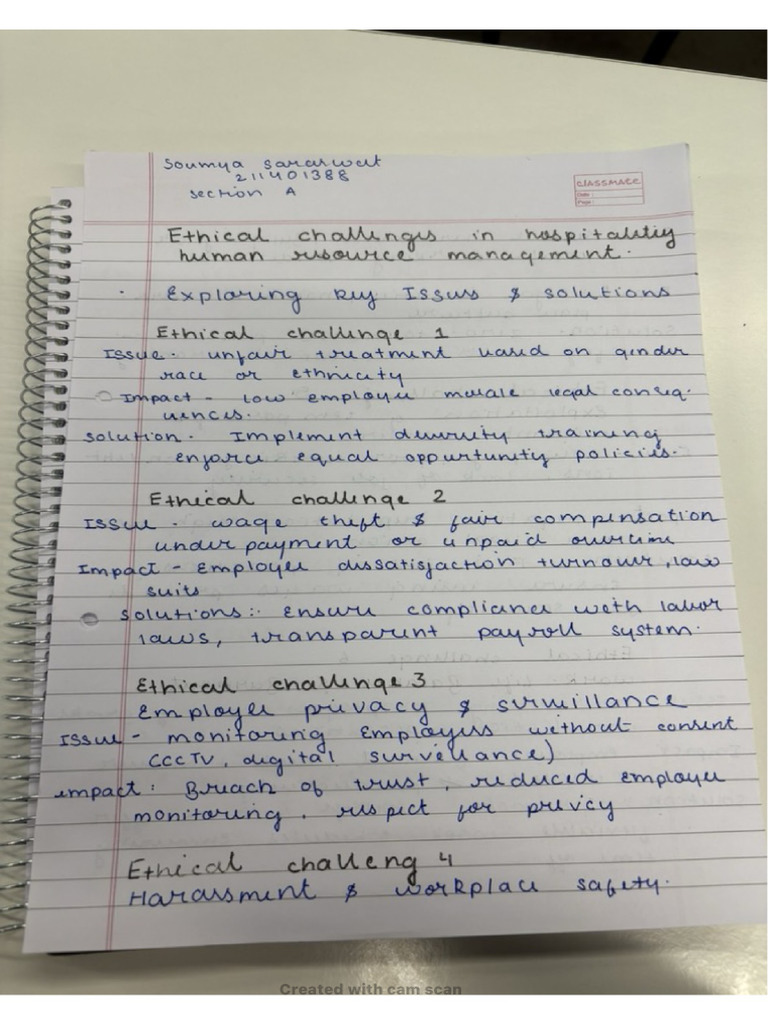 Soumya Saraswat
211401388
section A
CLASSMATE
Date :
Page :
Ethical challenges in hospitality
human resource management.
. Exploring key Issues & solutions
Ethical challenge 1
Issue. unfair treatment based on gender
race or ethnicity
Impact - low employee morale legal conseq-
uences.
Solution. Implement diversity training
enforce equal oppurtunity policies.
Ethical challenge 2
Issue . wage theft & fair compensation
under payment or unpaid overtime
Impact - Employee dissatisfaction turnover, law
suits
Solutions:. ensure compliance with labor
laws, transparent payroll system.
Ethical challenge 3
Employee privacy & surveillance
Issue - monitoring Employees without consent
CCCTV, digital surveilance)
empact : Breach of trust, reduced employee
monitoring. respect for privcy
Ethical challeng 4
Harassment & workplace safety.
Created with cam scan